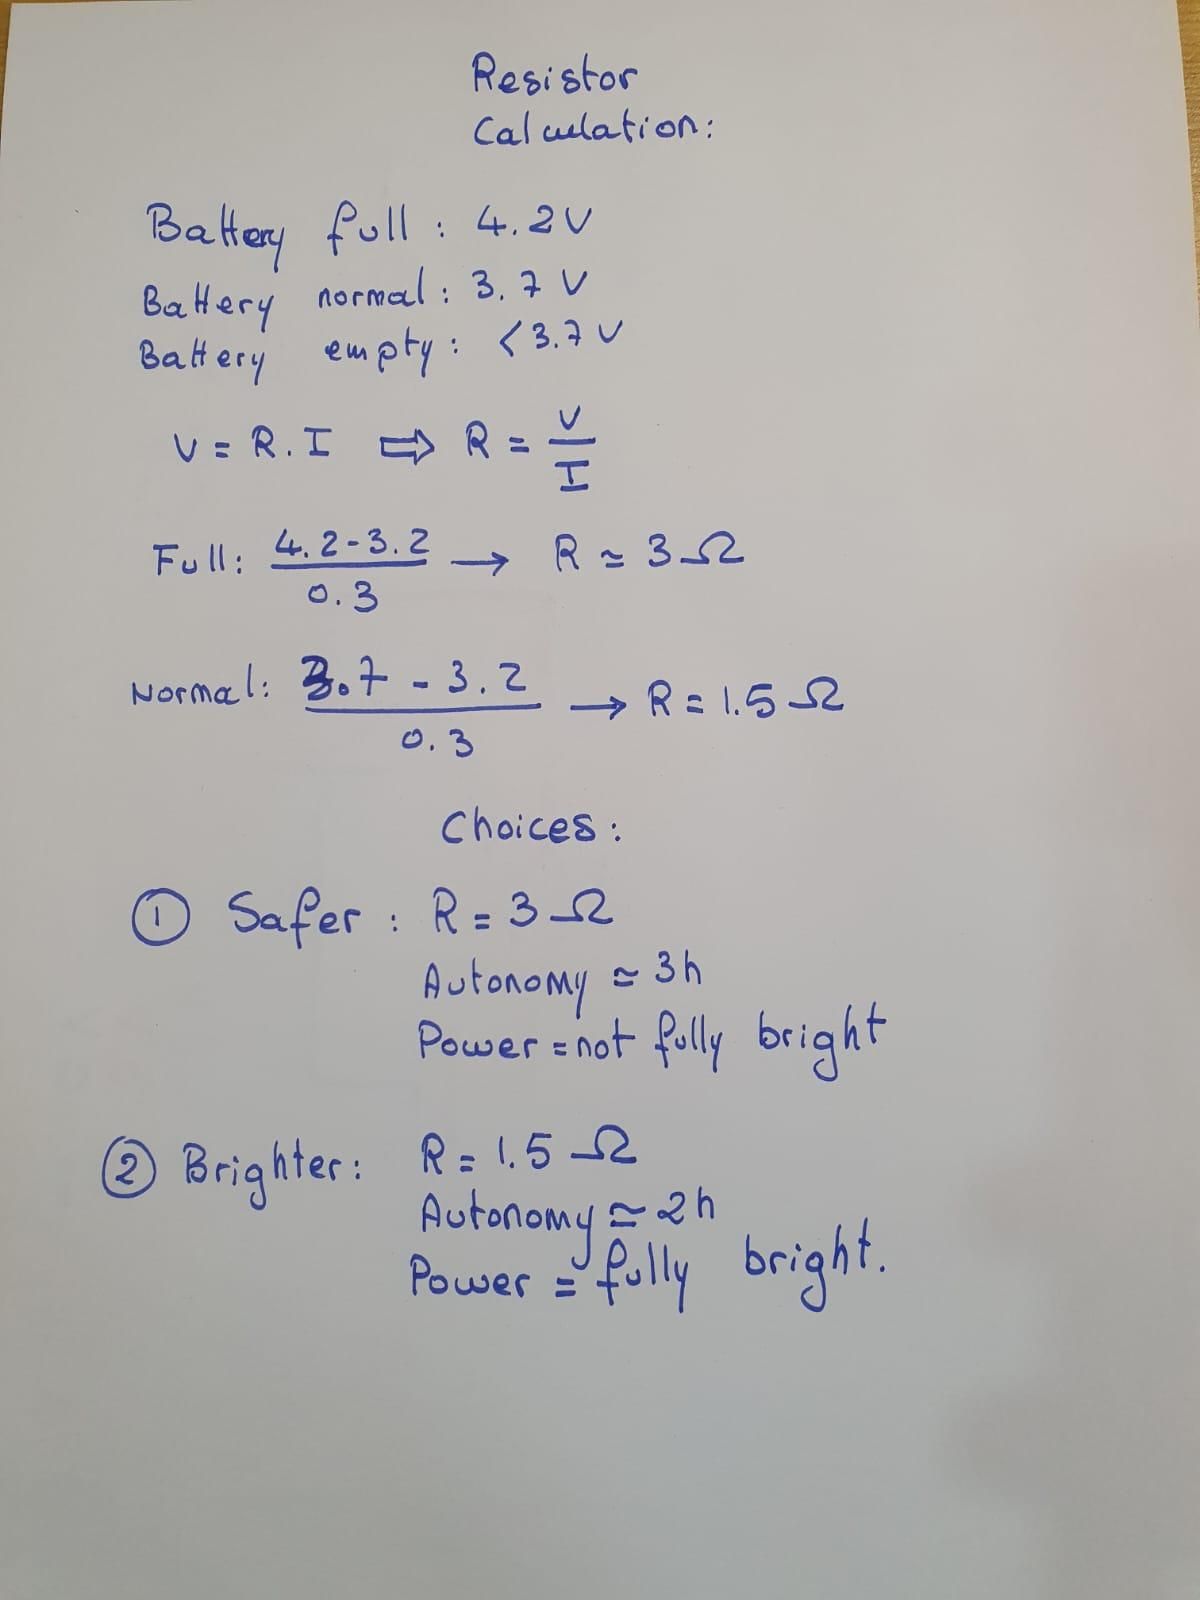 Resistor
Calculation:
Battery full : 4.2V
Battery normal : 3.7 V
Battery empty : < 3.7 V
V = R . I ⇒ R = V / I
Full: 4.2-3.2 / 0.3 → R ≃ 3 Ω
Normal: 3.7 - 3.2 / 0.3 → R = 1.5 Ω
Choices :
① Safer : R = 3 Ω
Autonomy ≃ 3h
Power = not fully bright
② Brighter : R = 1.5 Ω
Autonomy ≃ 2h
Power = fully bright.